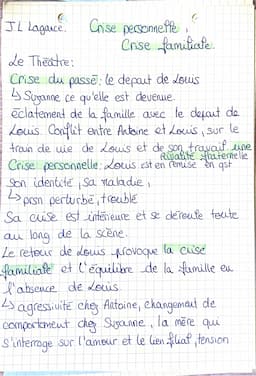 J L Lagarce. Crise personnelle,
Crise familiale
Le Théâtre:
Crise du passé: le depart de Louis
↳ Suzanne ce qu'elle est devenue.
éclatement de la famille avec le depart de
Louis. Conflit entre Antoine et Louis, sur le
train de vie de Louis et de son travail, une
Rivalité fraternelle
Crise personnelle: Louis est en remise en qst
son identité, sa maladie,
↳ prsn perturbé, troublé
Sa crise est intérieure et se déroule toute
au long de la scène.
Le retour de Louis provoque la crise
familiale et l'équilibre de la famille en
l'absence de Louis.
↳ agressivité chez Antoine, changement de
comportement chez Suzanne, la mère qui
s'interroge sur l'amour et le lien filial, tension